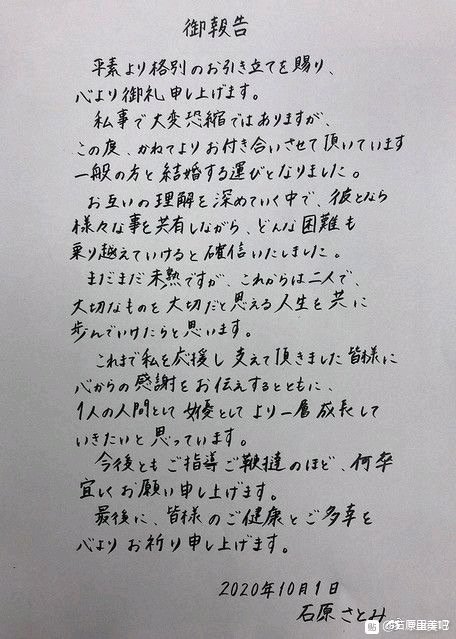 御報告
平素より格別のお引き立てを賜り、
心より御礼申し上げます。
私事で大変恐縮ではありますが、
この度、かねてよりお付き合いさせて頂いています
一般の方と結婚する運びとなりました。
お互いの理解を深めていく中で、彼となら
様々な事を共有しながら、どんな困難も
乗り越えていけると確信いたしました。
まだまだ未熟ですが、これからは二人で、
大切なものを大切だと思える人生を共に
歩んでいけたらと思います。
これまで私を応援し支えて頂きました皆様に
心からの感謝をお伝えするとともに、
1人の人間として女優としてより一層成長して
いきたいと思っています。
今後ともご指導ご鞭撻のほど、何卒
宜しくお願い申し上げます。
最後に、皆様のご健康とご多幸を
心よりお祈り申し上げます。
2020年10月1日
石原さとみ
貼 @石原里美吧